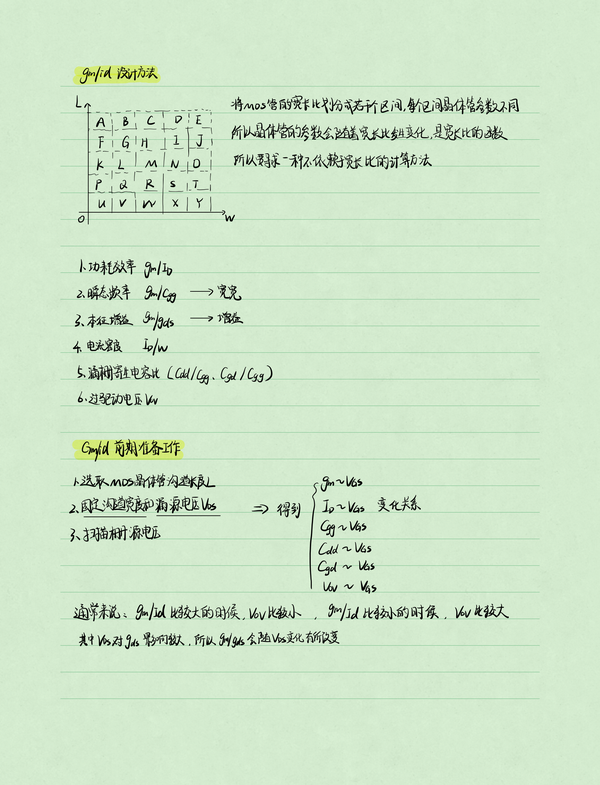 gm/id 设计方法
L
A B C D E
F G H I J
K L M N O
P Q R S T
U V W X Y
O W
将MOS管的宽长比划分成若干区间,每个区间晶体管参数不同
所以晶体管的参数会随着宽长比发生变化,是宽长比的函数
所以要寻求一种不依赖于宽长比的计算方法
1、功耗效率 gm/ID
2、瞬态频率 gm/Cgg → 宽
3、本征增益 gm/gds → 增益
4、电流密度 ID/W
5、漏栅寄生电容比 (Cdd/Cgg、Cgd/Cgg)
6、过驱动电压 Vov
Gm/id 前期准备工作
1、选取MOS晶体管沟道长L
2、固定沟道宽度和漏源电压VDS
3、扫描栅源电压
⇒ 得到
gm~VGS
ID~VGS 变化关系
Cgg~VGS
Cdd~VGS
Cgd~VGS
Vov~VGS
通常来说:gm/id 比较大的时候,Vov比较小,gm/id 比较小的时候,Vov比较大
其中VDS对gds影响较大,所以gm/gds会随VDS变化有所改变